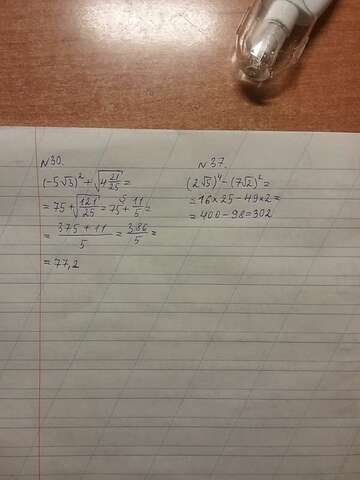 N30.
(-5√3)² + √(4 21/25) =
= 75 + √(121/25) = 75 + 11/5 =
= (375 + 11)/5 = 386/5 =
= 77,2
N37.
(2√5)⁴ - (7√2)² =
= 16 × 25 - 49 × 2 =
= 400 - 98 = 302